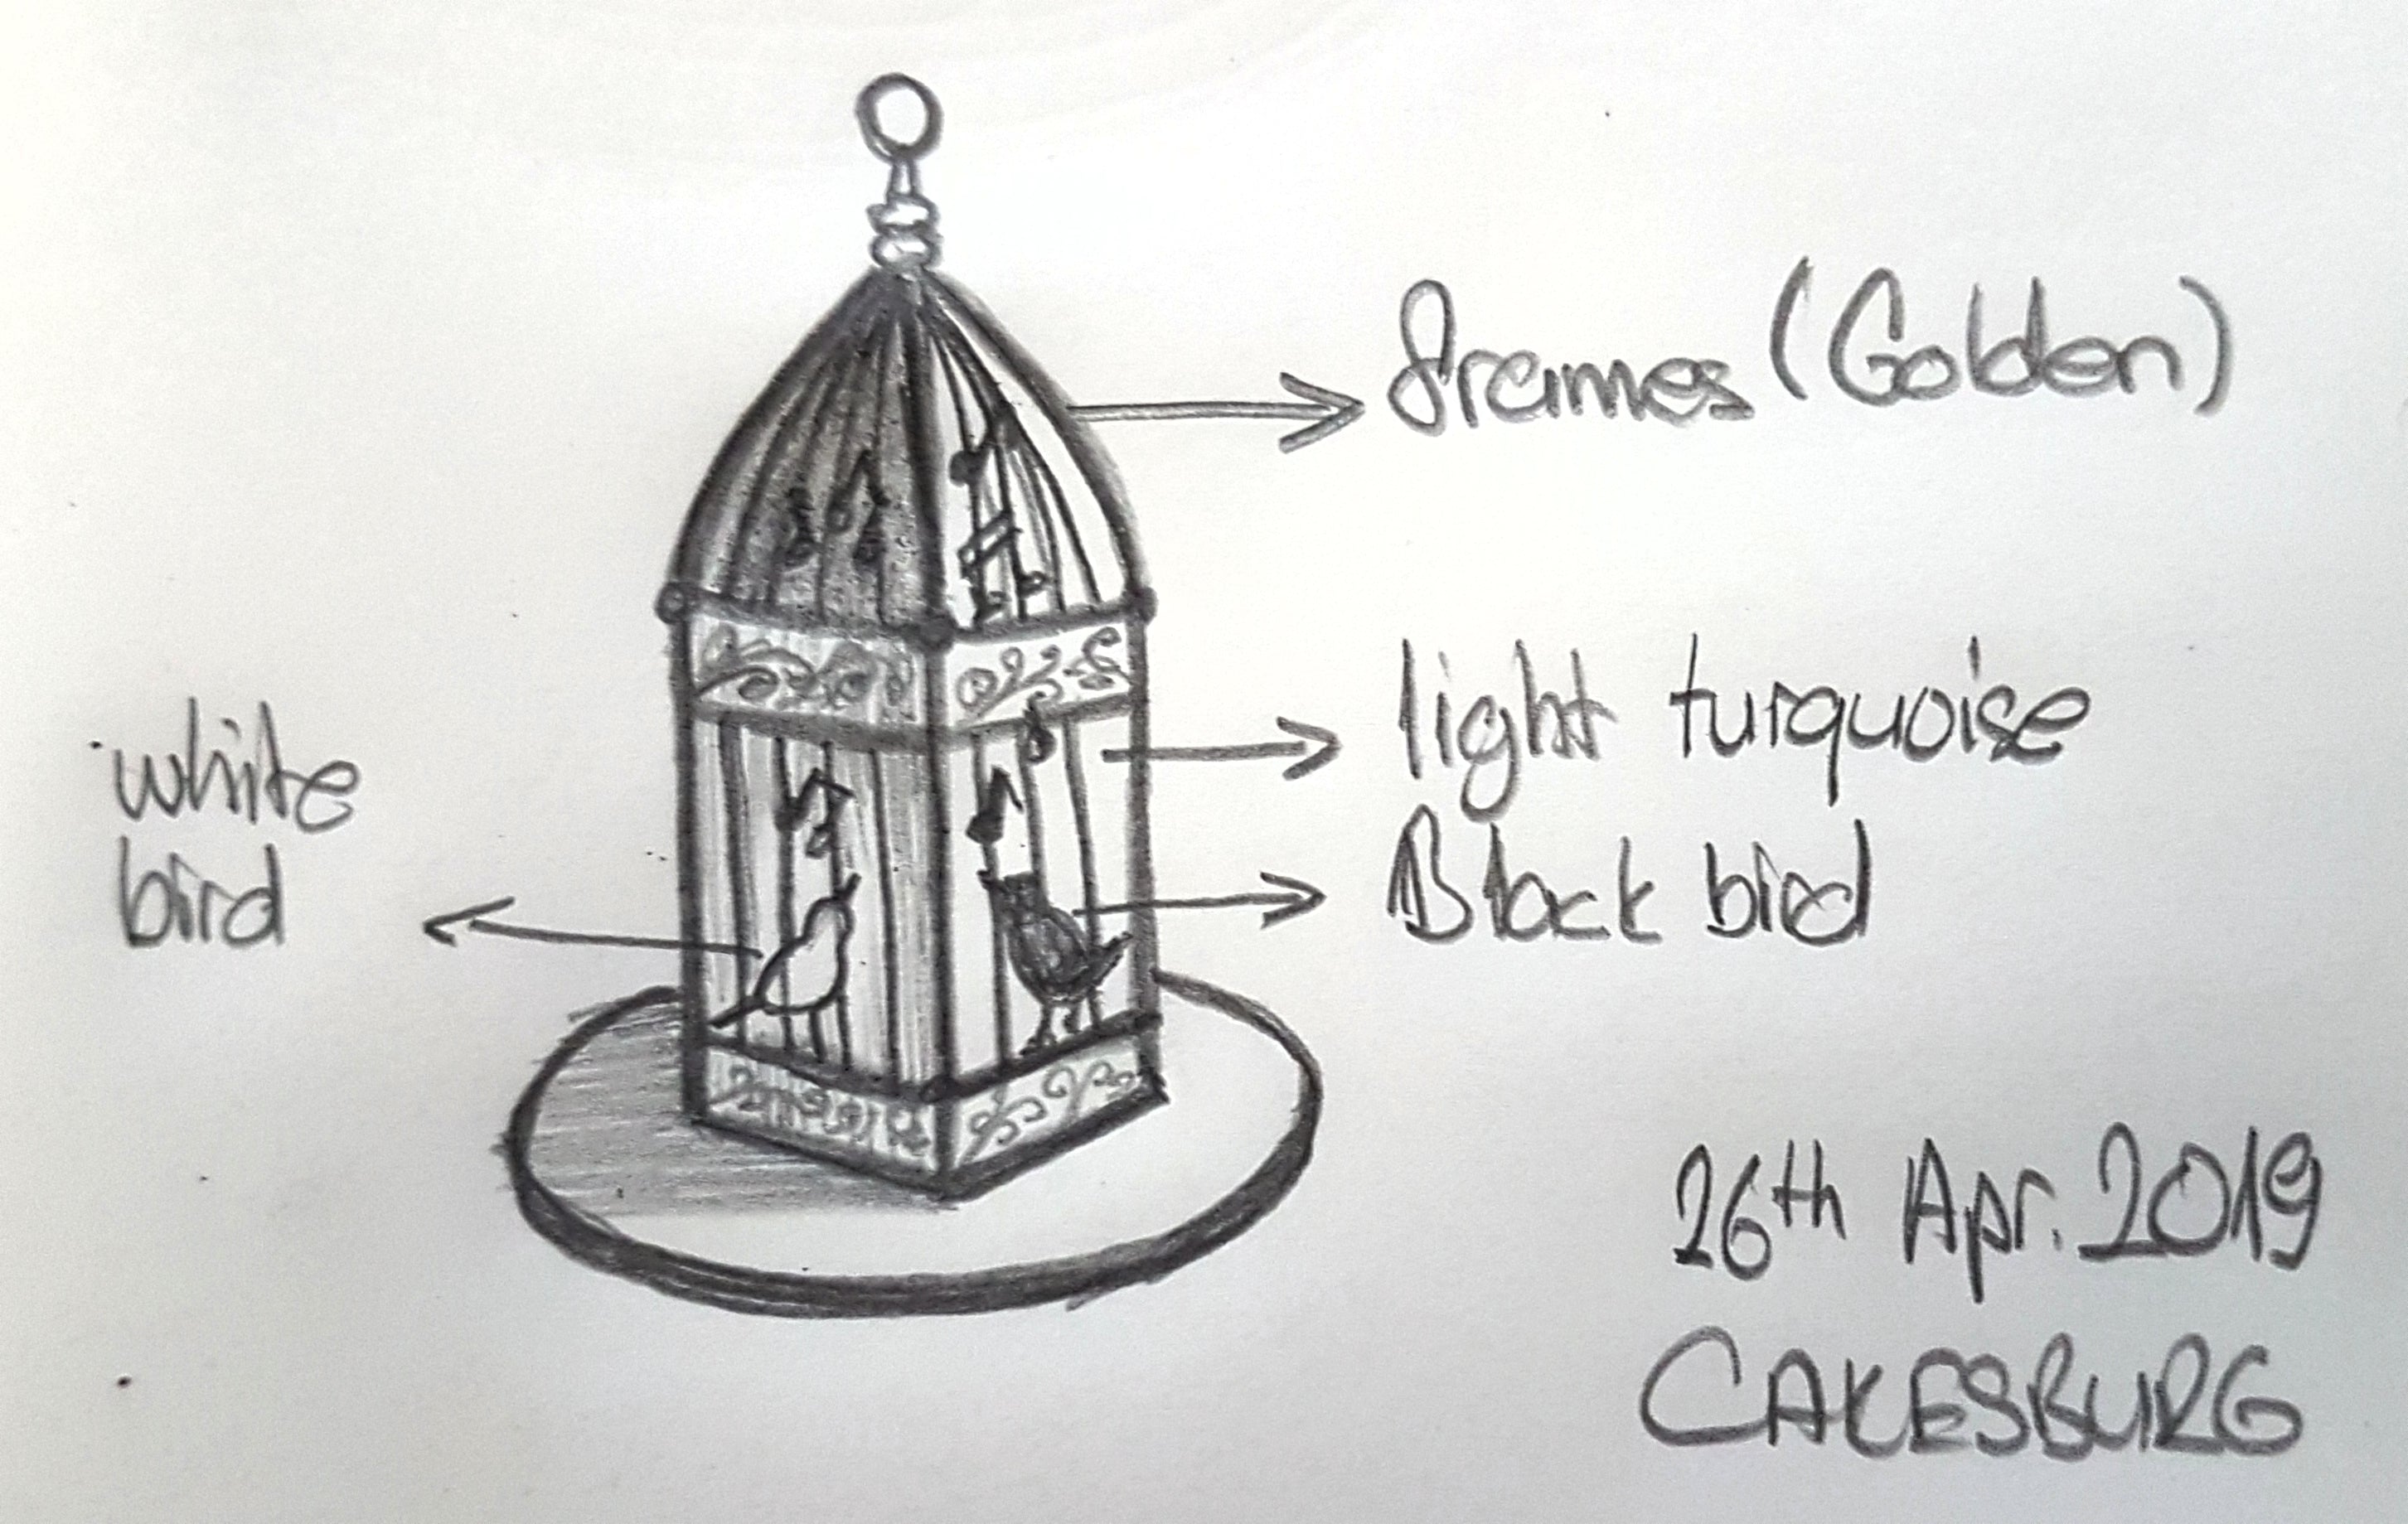 frames (Golden)
light turquoise
white
bird
Black bird
26th Apr. 2019
CAKESBURG